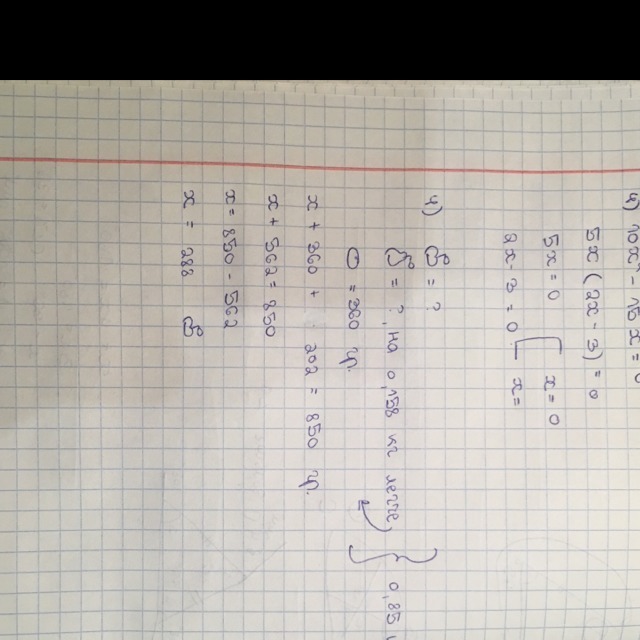 10x² - 15x = 0
5x (2x - 3) = 0
5x = 0 x = 0
2x - 3 = 0 x =
4) = ?
= ?, на 0,158 кг легче } 0,85
= 360 гр.
x + 360 + 202 = 850 гр.
x + 562 = 850
x = 850 - 562
x = 288